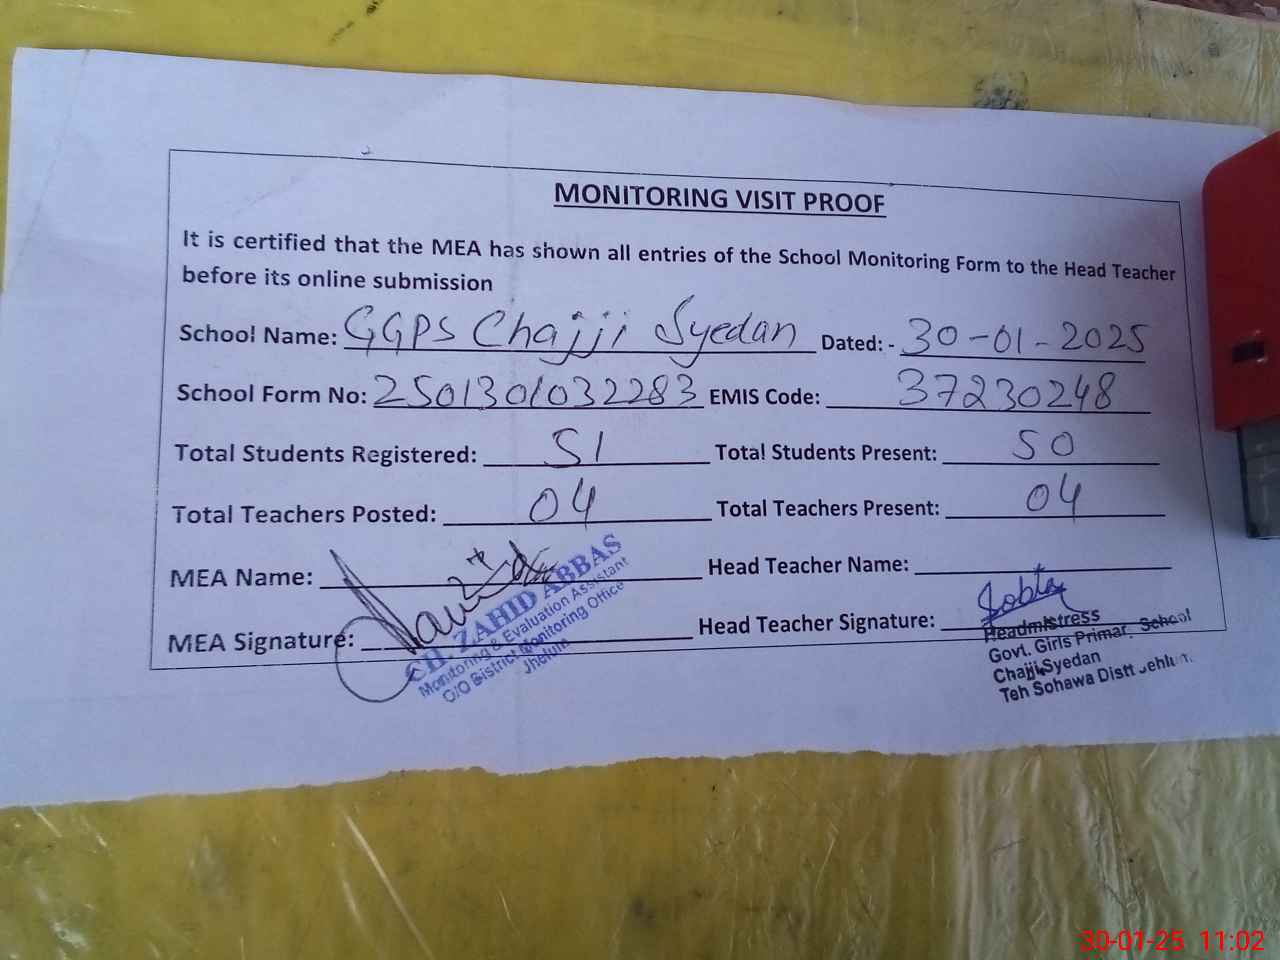 MONITORING VISIT PROOF
It is certified that the MEA has shown all entries of the School Monitoring Form to the Head Teacher
before its online submission
School Name: GGPS Chajji Syedan Dated: - 30-01-2025
School Form No: 2501301032283 EMIS Code: 37230248
Total Students Registered: 51 Total Students Present: 50
Total Teachers Posted: 04 Total Teachers Present: 04
MEA Name: Head Teacher Name:
MEA Signature: Head Teacher Signature:
CH. ZAHID ABBAS
Monitoring & Evaluation Assistant
O/O District Monitoring Office
Jhelum
Headmistress
Govt. Girls Primary School
Chajji Syedan
Teh Sohawa Distt Jehlum.
30-01-25 11:02